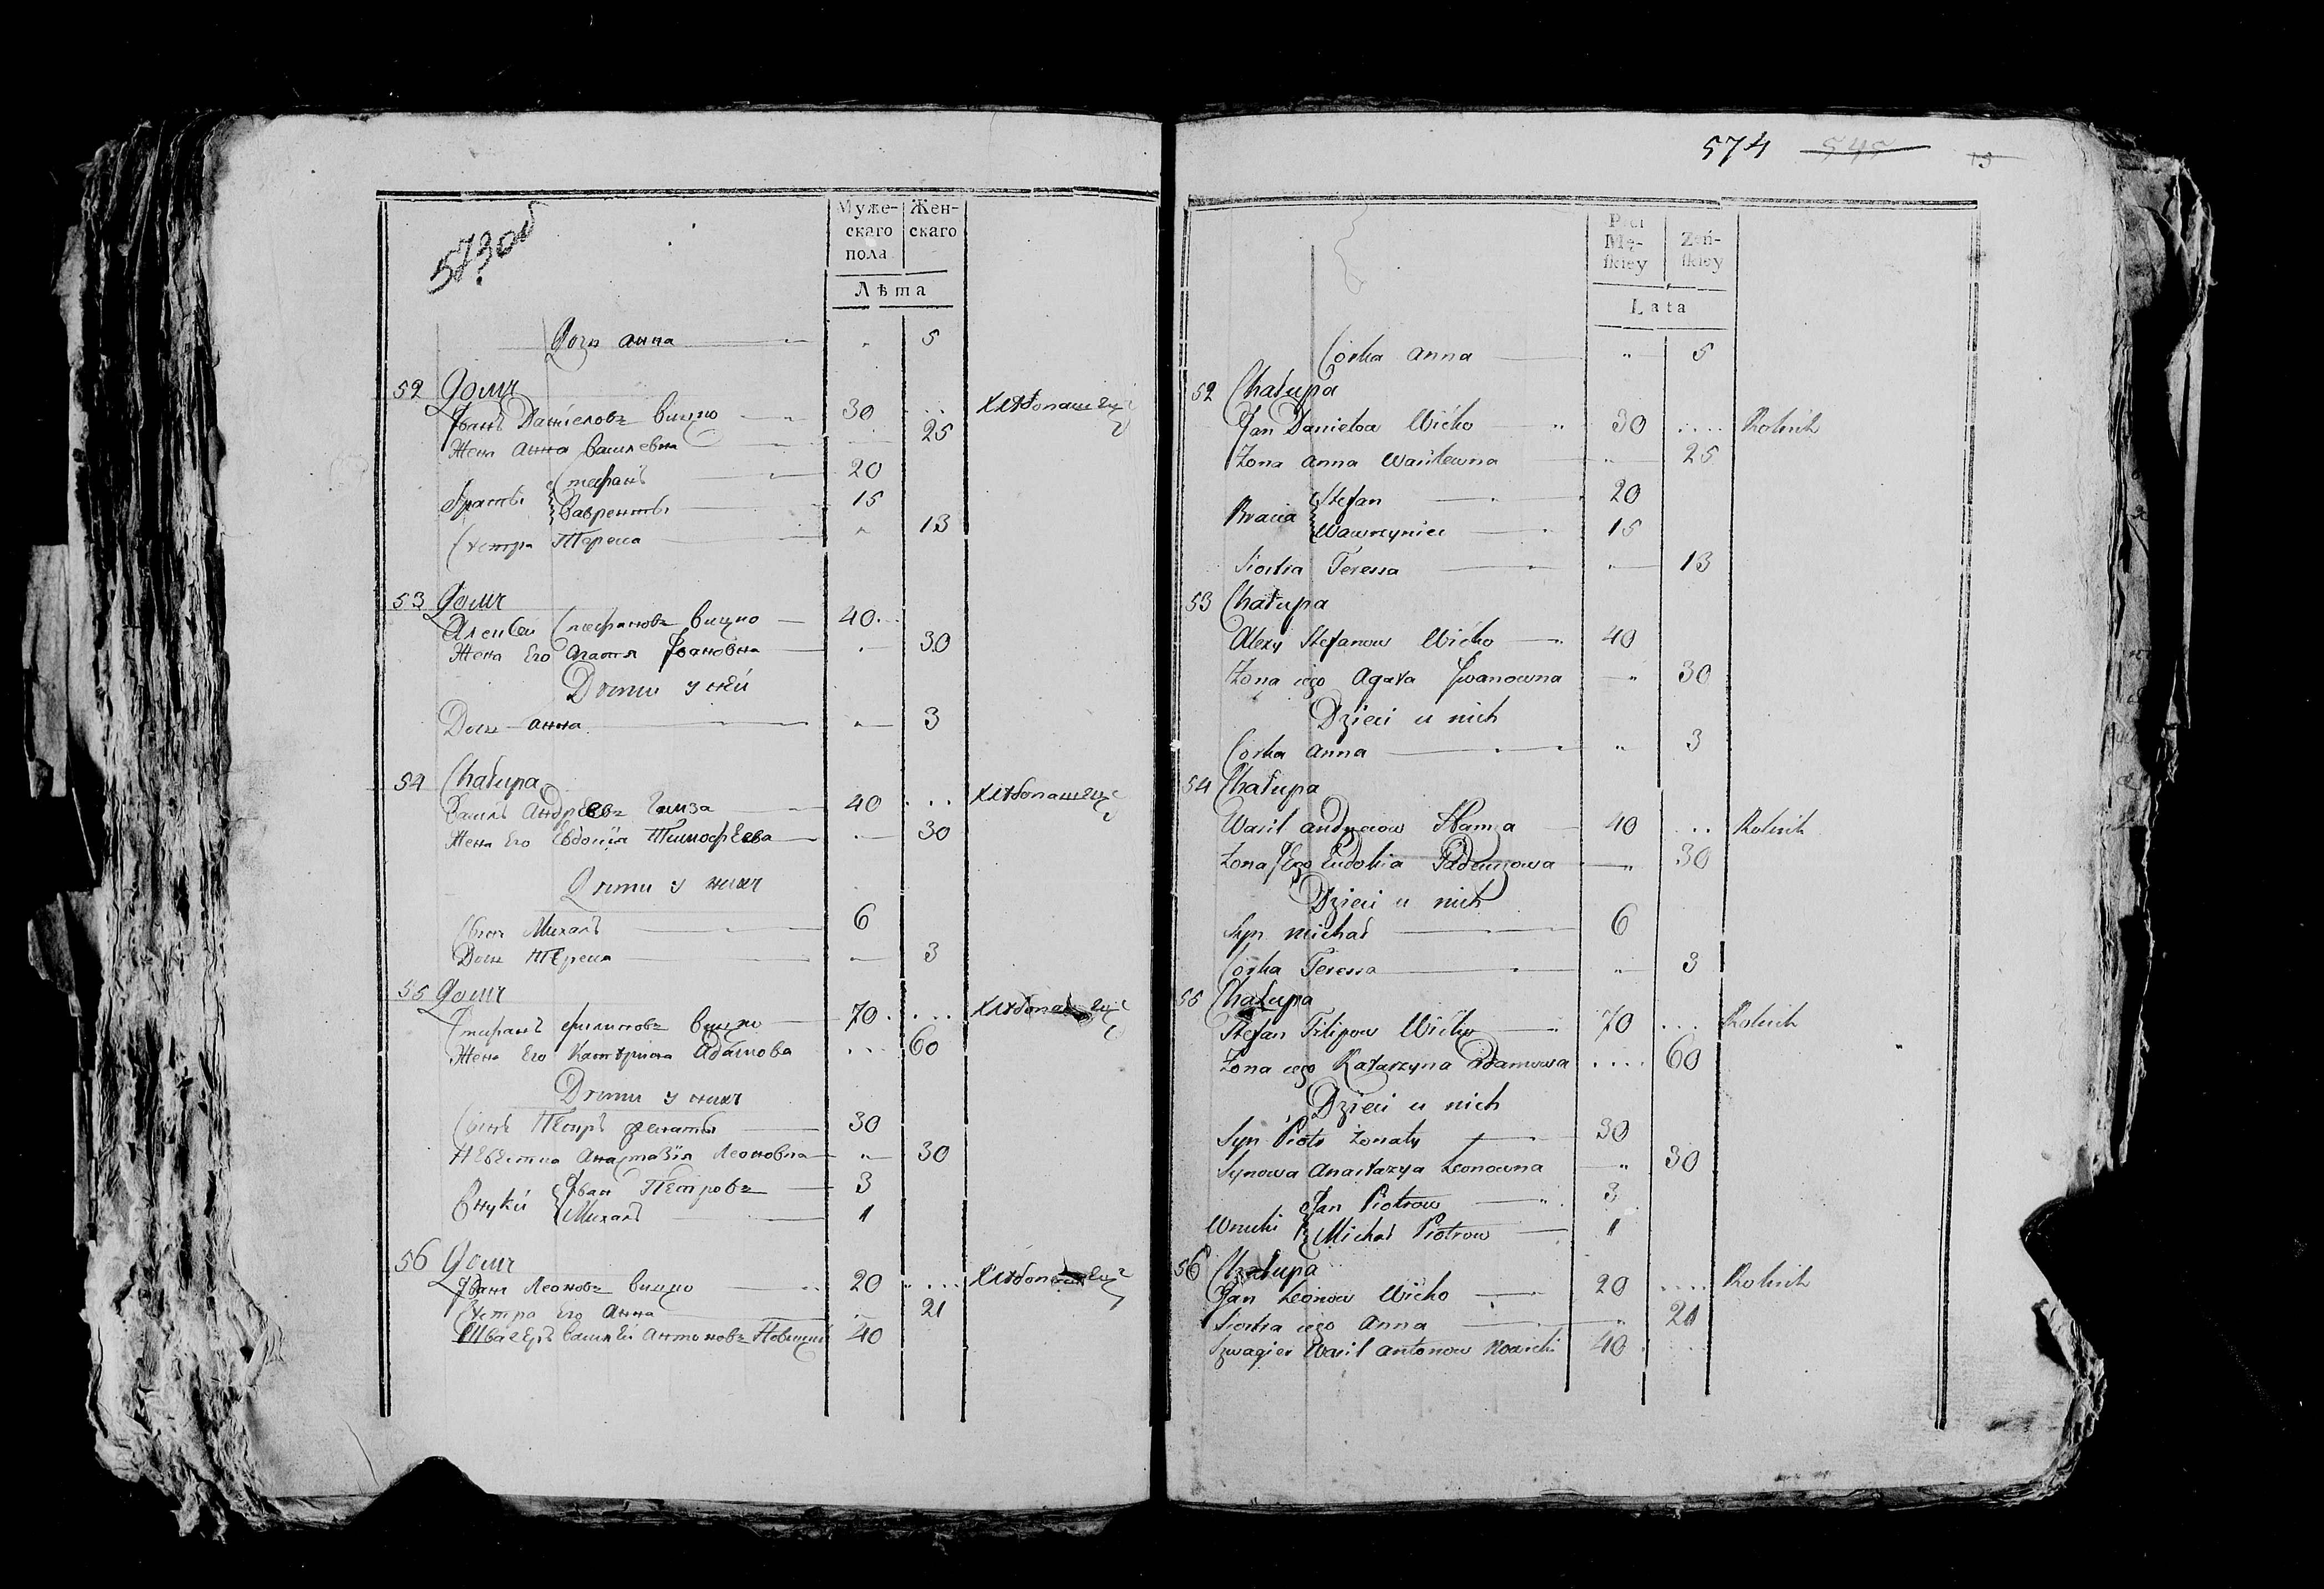 573 об
Муже- Жен-
скаго скаго
пола
Лѣта
Дочь Анна 5
52 Домъ
Іванъ Даніеловъ Вицко 30 Хлѣбопашецъ
Жена Анна Васілевна 25
Стефанъ 20
Братьѣ Лаврентьі 15
Сестра Тереса 13
53 Домъ
Алексѣй Стефановъ Вицко 40
Жена Его Агатя Івановна 30
Дѣти у ней
Дочь Анна 3
54 Chałupa
Василь Андрѣевъ Гамза 40 Хлѣбопашецъ
Жена Его Евдокія Тимофѣева 30
Дѣти у нихъ
Сынъ Михалъ 6
Дочь Тереса 3
55 Домъ
Стефанъ Филиповъ Вицко 70 Хлѣбопашецъ
Жена Его Катерина Адамова 60
Дѣти у нихъ
Сынъ Петръ женатъ 30
Невѣстка Анастазія Леоновна 30
Іван Петровъ 3
Внуки Михалъ 1
56 Домъ
Іванъ Леоновъ Вицко 20 Хлѣбопашецъ
Сестра Его Анна 21
Швагеръ Василей Антоновъ Новицкі 40
574 545
Płci
Mę- Zeń-
ſkiey ſkiey
Lata
Corka Anna 5
52 Chałupa
Jan Danielow Wićko 30 Rolnik
Zona Anna Wasilewna 25
Stefan 20
Bracia Wawrzyniec 15
Siostra Teressa 13
53 Chałupa
Alexy Stefanow Wićko 40
Zona iego Agata Jwanowna 30
Dzieci u nich
Corka Anna 3
54 Chałupa
Wasil Andrzeiow Hamza 40 Rolnik
Zona Jego Eudokia 30
Dzieci u nich
Syn Michał 6
Corka Teressa 3
55 Chałupa
Stefan Filipow Wićko 70 Rolnik
Zona iego Katarzyna Adamowa 60
Dzieci u nich
Syn Piotr Zonaty 30
Synowa Anastazya Leonowna 30
Jan Piotrow 3
Wnuki Michał Piotrow 1
56 Chałupa
Jan Leonow Wićko 20 Rolnik
Siostra iego Anna 21
Szwagier Wasil Antonow Nowicki 40